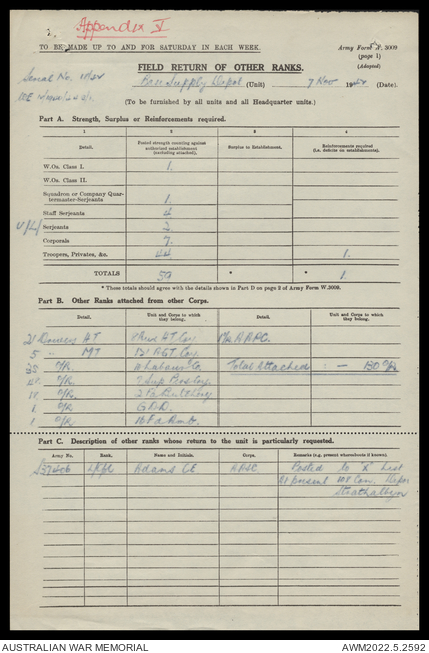 Appendix V
TO BE MADE UP TO AND FOR SATURDAY IN EACH WEEK.
Army Form W. 3009
(page 1)
(Adapted)
FIELD RETURN OF OTHER RANKS.
Serial No.
Base Supply Depot (Unit) 7 Nov (Date).
(To be furnished by all units and all Headquarter units.)
Part A. Strength, Surplus or Reinforcements required.
1 2 3 4
Detail. Posted strength counting against authorized establishment (excluding attached). Surplus to Establishment. Reinforcements required (i.e. deficits on establishments).
W.Os. Class I. 1.
W.Os. Class II.
Squadron or Company Quar-
termaster-Serjeants 1.
Staff Serjeants 4
Serjeants 2
Corporals 7.
Troopers, Privates, &c. 44. 1.
TOTALS 59 * * 1.
* These totals should agree with the details shown in Part D on page 2 of Army Form W.3009.
Part B. Other Ranks attached from other Corps.
Detail. Unit and Corps to which they belong. Detail. Unit and Corps to which they belong.
H.T. H.T. Coy
5 " M T
O/R Labour
O/R
O/R
O/R G.D.D.
1 O/R
Total Attached : — 130
Part C. Description of other ranks whose return to the unit is particularly requested.
Army No. Rank. Name and Initials. Corps. Remarks (e.g. present whereabouts if known).
Adams CE Posted to "X" List
At present 108 Con. Depot
Strathalbyn
AUSTRALIAN WAR MEMORIAL
AWM2022.5.2592